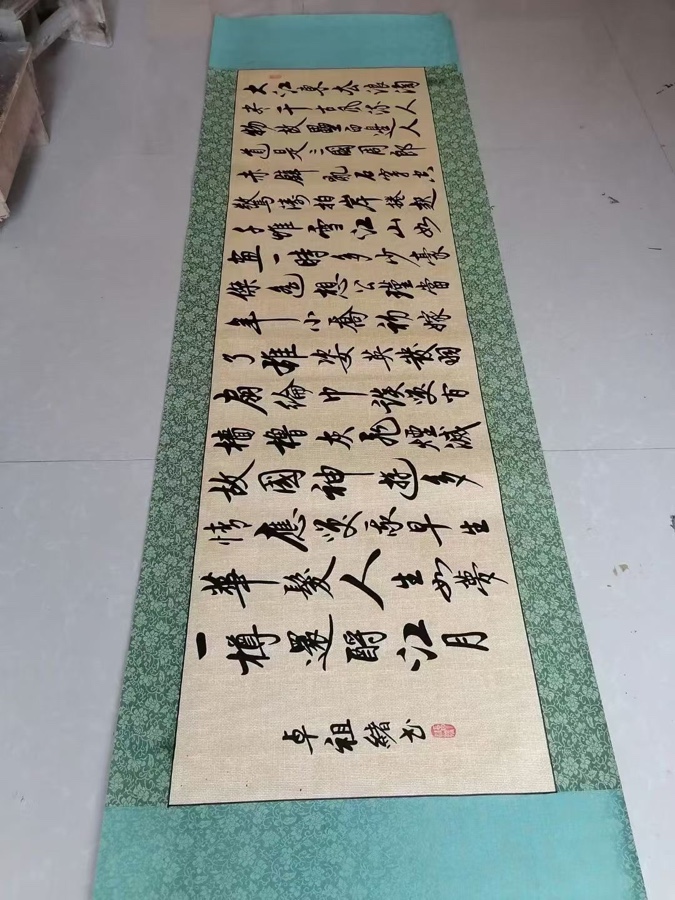 大江東去浪淘
尽千古風流人
物故壘西邊人
道是三國周郎
赤壁亂石穿空
驚濤拍岸捲起
千堆雪江山如
畫一時多少豪
傑遙想公瑾當
年小喬初嫁
了雄姿英發羽
扇綸巾談笑间
檣櫓灰飛煙滅
故國神遊多
情應笑我早生
華髮人生如夢
一樽還酹江月
卓祖緒书